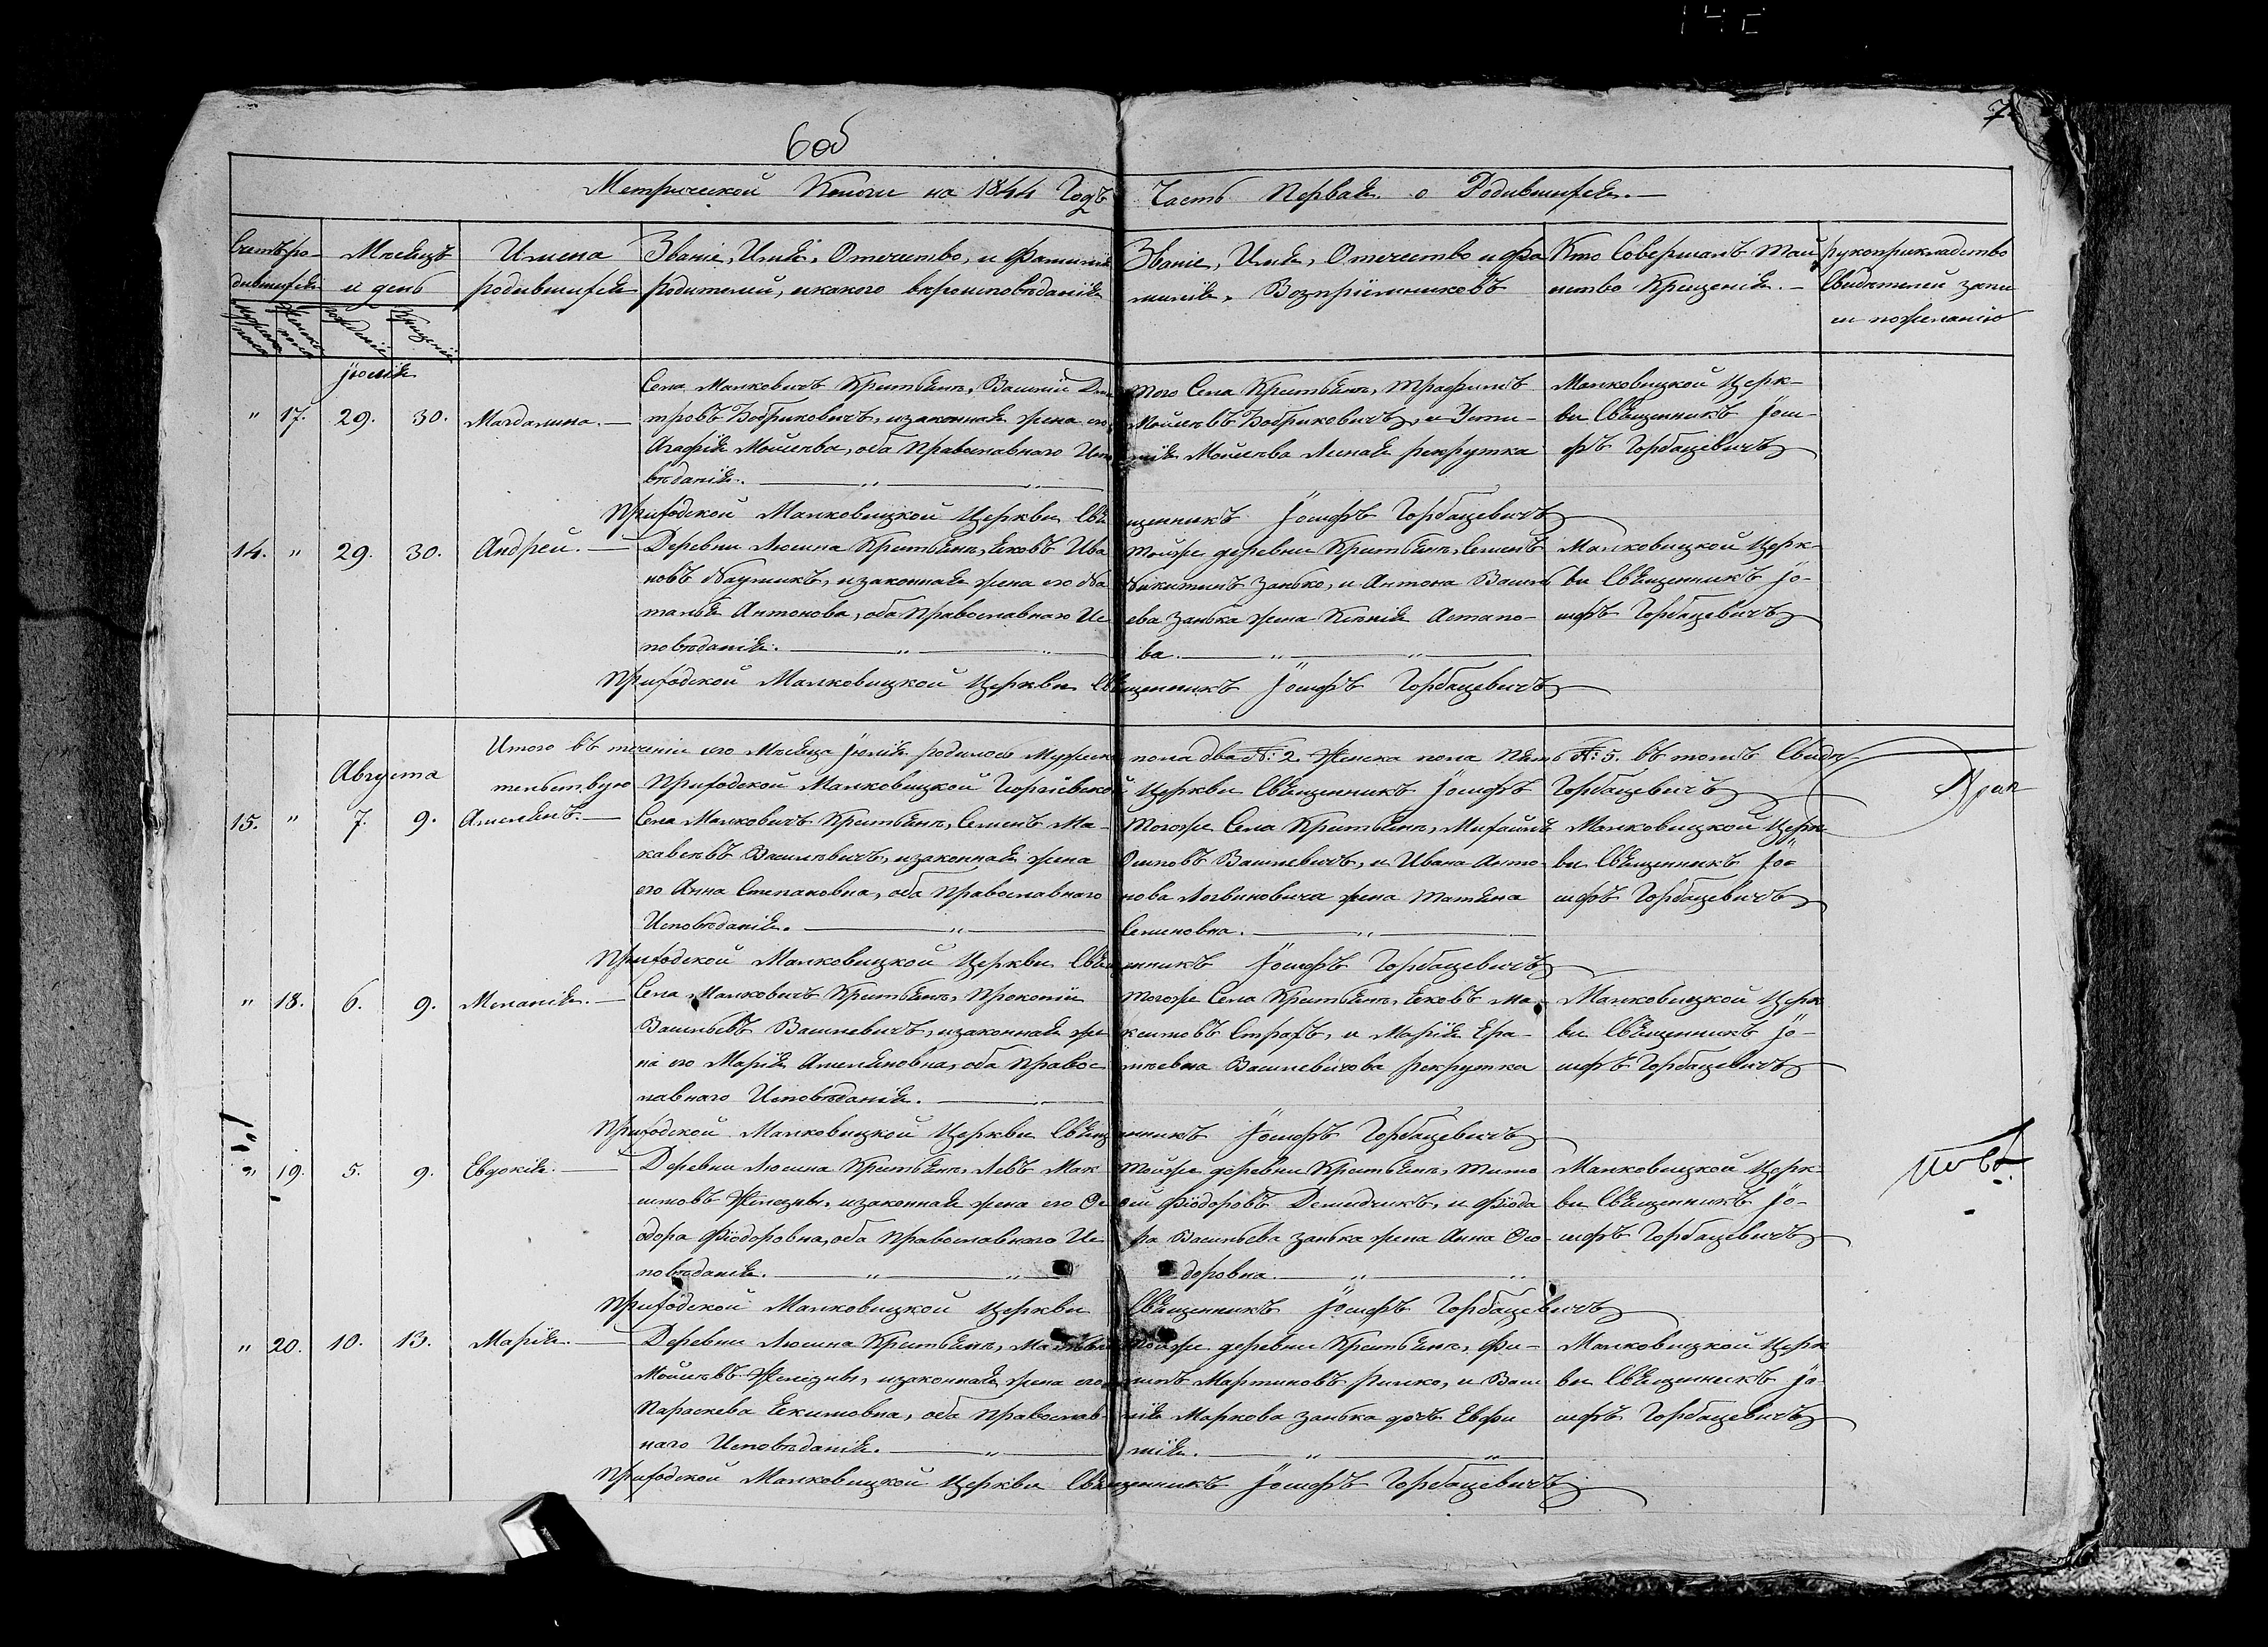 6об
7
Метрической Книги на 1844 Годъ Часть Первая о Родившихся.
Счетъ ро-
дившихся
Мужеска
пола
Женска
пола
Мѣсяцъ
и день
рожденія
Крещенія
Имена
родившихся
Званіе, Имя, Отечество, и Фамилія
родителей, икакого вѣроисповѣданія
Званіе, Имя, Отечество и Фа
милія, Воспріемниковъ
Кто Совершалъ Таи
нство Крещенія.
рукоприкладство
Свидѣтелей запи
си пожеланію
Іюлія
" 17. 29. 30. Магдалина.
Села Малковичъ Крестьянъ, Василій Дми
тровъ Бобриковичъ, изаконная жена его
Агафія Мойсѣева, оба Православнаго Испо
вѣданія.
того Села Крестьянъ, Трафимъ
Мойсѣевъ Бобриковичъ, и Усти-
нія Мойсѣева рекрутка
Малковицкой Церк-
ви Священникъ Іоси-
фъ Горбацевичъ
Приходской Малковицкой Церкви Священникъ Іосифъ Горбацевичъ
14. " 29. 30. Андрей.
Деревни Люсина Крестьянъ, Яковъ Ива
новъ Наумикъ, изаконная жена его На
талья Антонова, оба Православнаго Ис
повѣданія.
тойже деревни Крестьянъ, Семенъ
Никитинъ Занько, и Антона Василь
ева Занька жена Ксѣнія Астапо-
ва.
Малковицкой Церк-
ви Священникъ Іо-
сифъ Горбацевичъ
Приходской Малковицкой Церкви Священникъ Іосифъ Горбацевичъ
Итого въ теченіи его Мѣсяца Іюлія родилось Мужеска пола два №: 2. Женска пола Пять №: 5. въ томъ Свидѣ-
тельствую Приходской Малковицкой Георгіевской Церкви Священникъ Іосифъ Горбацевичъ
Августа
15. " 7. 9. Амельянъ.
Села Малковичъ Крестьянъ, Семенъ Ма-
кавеевъ Василевичъ, изаконная жена
его Анна Степановна, оба Православнаго
Исповѣданія.
тогоже Села Крестьянъ, Михайлъ
Осиповъ Василевичъ, и Ивана Анто-
нова Логвиновича жена Татьяна
Семеновна.
Малковицкой Церк
ви Священникъ Іо-
сифъ Горбацевичъ
Приходской Малковицкой Церкви Священникъ Іосифъ Горбацевичъ
" 18. 6. 9. Меланія.
Села Малковичъ Крестьянъ, Прокопій
Васильевъ Василевичъ, изаконная же
на его Марія Амельяновна, оба Правос
лавнаго Исповѣданія.
тогоже Села Крестьянъ, Яковъ Ма-
ксимовъ Страхъ, и Марія Ера-
Василевичова рекрутка
Малковицкой Церк
ви Священникъ Іо-
сифъ Горбацевичъ
Приходской Малковицкой Церкви Священникъ Іосифъ Горбацевичъ
" 19. 5. 9. Евдокія.
Деревни Люсина Крестьянъ, Левъ Мак
симовъ Железны, изаконная жена его Ѳе
одора Фіодоровна, оба Православнаго Ис
повѣданія.
тойже деревни Крестьянъ, Тимо
фіодоровъ Демидчикъ, и Фіодо
ра Васильева Занька жена Анна Ѳео
доровна.
Малковицкой Церк-
ви Священникъ Іо-
сифъ Горбацевичъ
Приходской Малковицкой Церкви Священникъ Іосифъ Горбацевичъ
" 20. 10. 13. Марія.
Деревни Люсина Крестьянъ,
Мойсѣевъ Железны, изаконная жена его
Параскева Екимовна, оба Православ
наго Исповѣданія.
тойже деревни Крестьянъ, Фи-
липъ Мартиновъ и Васи
лія Маркова Занька дочь Евфи
мія.
Малковицкой Церк
ви Священникъ Іо
сифъ Горбацевичъ
Приходской Малковицкой Церкви Священникъ Іосифъ Горбацевичъ